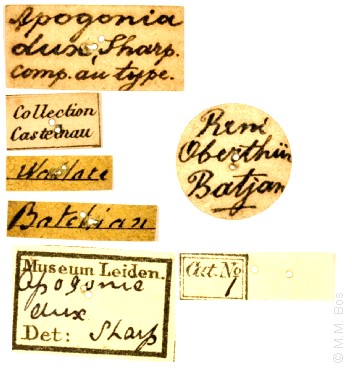 Apogonia
dux, Sharp.
comp. au type.
Collection
Castelnau
Wallace
Batchian
René
Oberthür
Batjan
Museum Leiden.
Apogonia
dux
Det: Sharp
Cat. No
1
© M.M. Bos